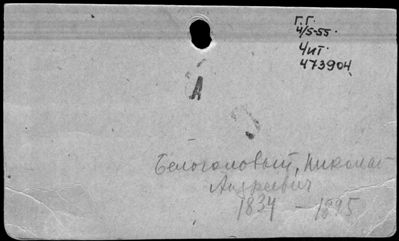 Г.Г.
4/5-55.
Чит.
473904
Белоголовый, Николай
Андреевич
1834 – 1895